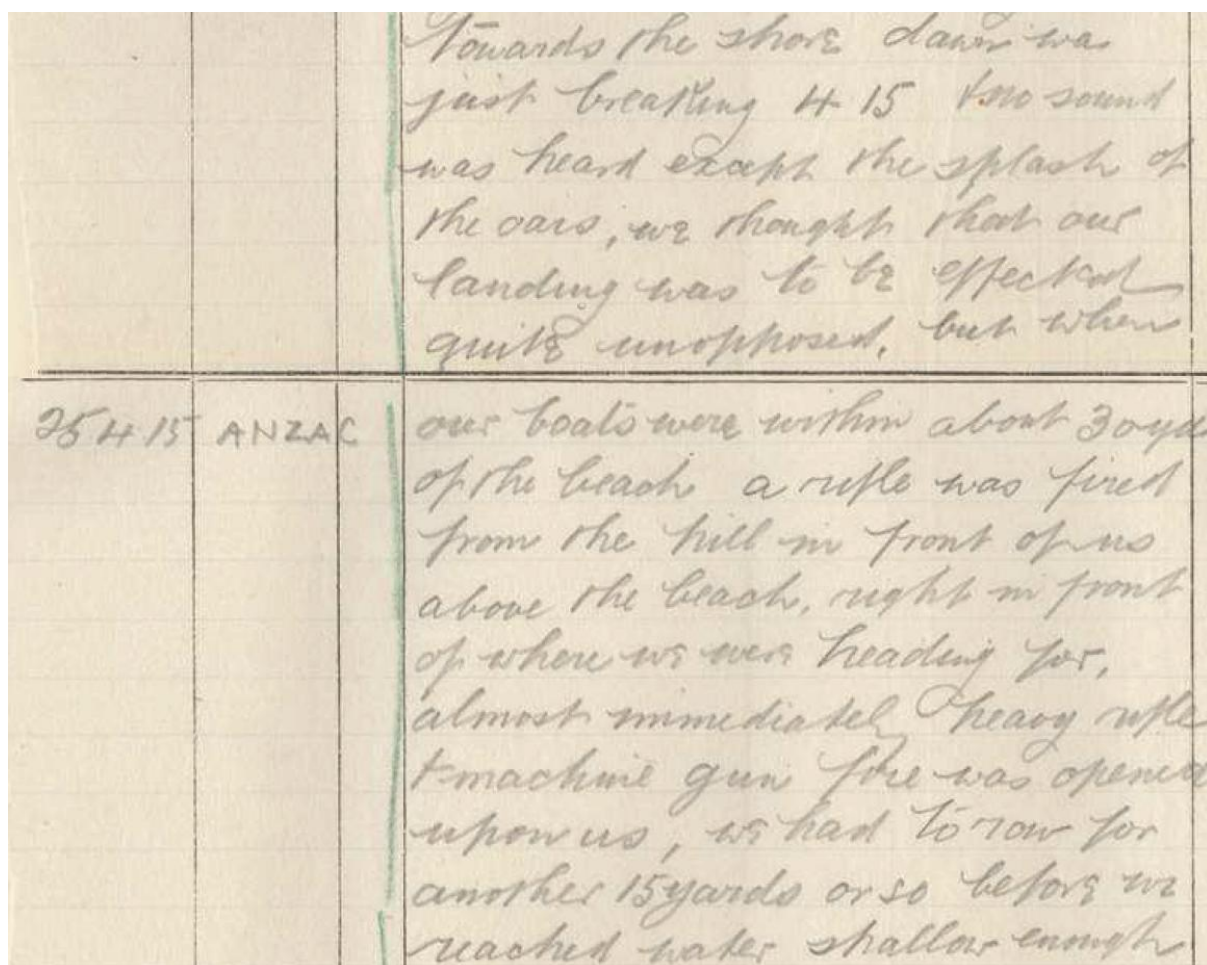 Towards the shore dawn was
just breaking 4 15 & no sound
was heard except the splash of
the oars, we thought that our
landing was to be effected
quite unopposed, but when
25 4 15 ANZAC our boats were within about 30 yds
of the beach a rifle was fired
from the hill in front of us
above the beach, right in front
of where we were heading for,
almost immediately heavy rifle
& machine gun fire was opened
upon us, we had to row for
another 15 yards or so before we
reached water shallow enough